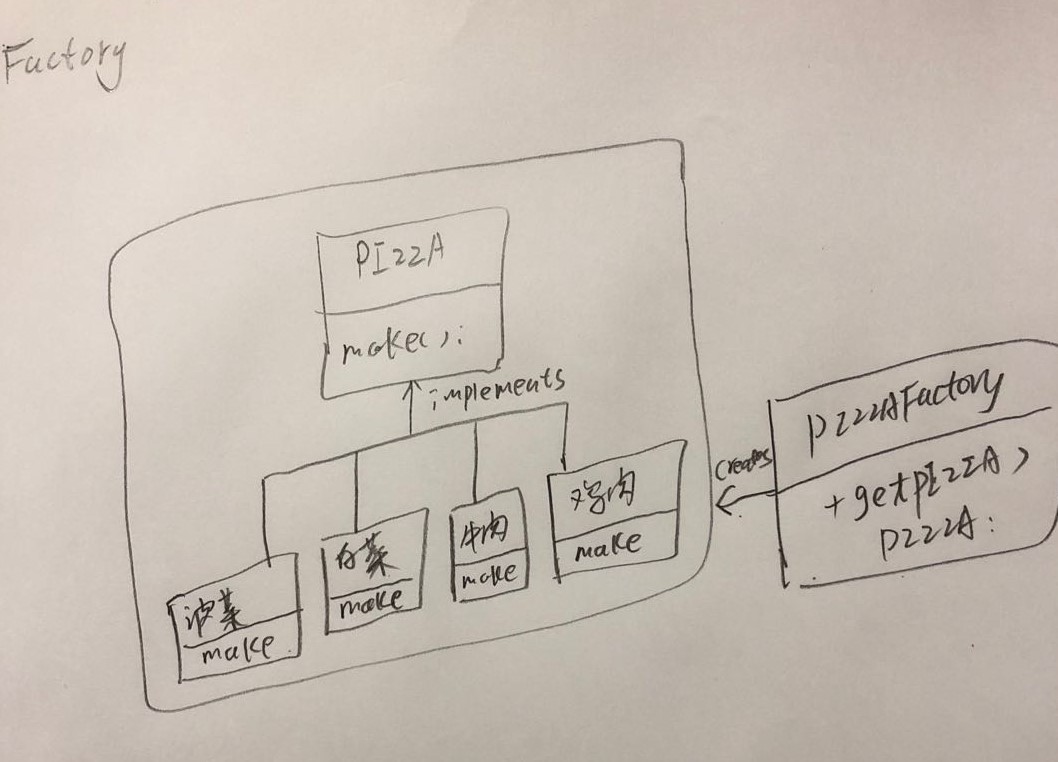 Factory
PIzzA
make();
implements
鸡肉
make
牛肉
make
白菜
make
波菜
make
creates
PIzzAFactory
+getPIzzA()
PIzzA: